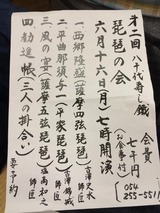 才二回 八千代寿し鐡
琵琶の会
六月十六日(月)七時開演
会費
七千円
(お食事付)
054
255-5511
一.西郷隆盛(薩摩四弦琵琶)
二.平曲那須与一(平家琵琶)
三.風の宴(薩摩五弦琵琶)
四.勧進帳(三人の掛合い)
要予約